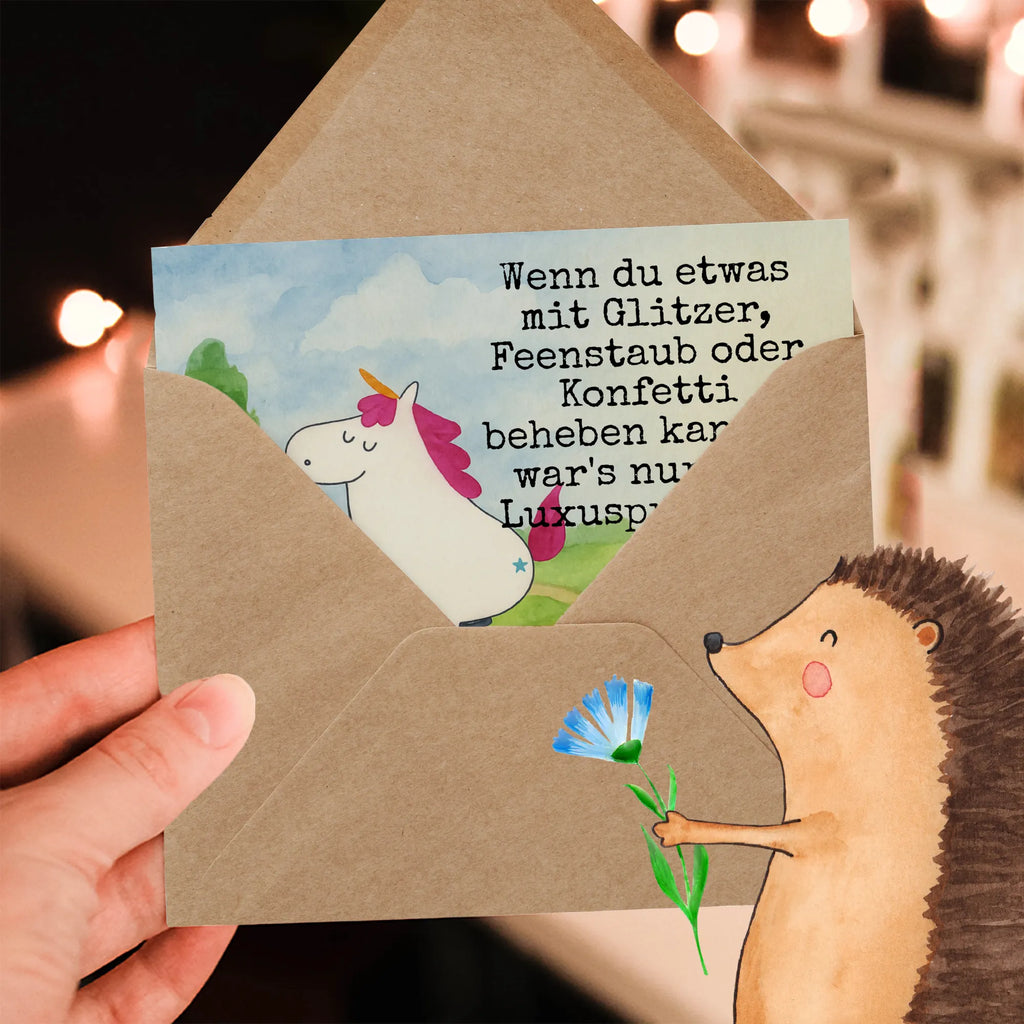 Wenn du etwas
mit Glitzer,
Feenstaub oder
Konfetti
beheben
war's